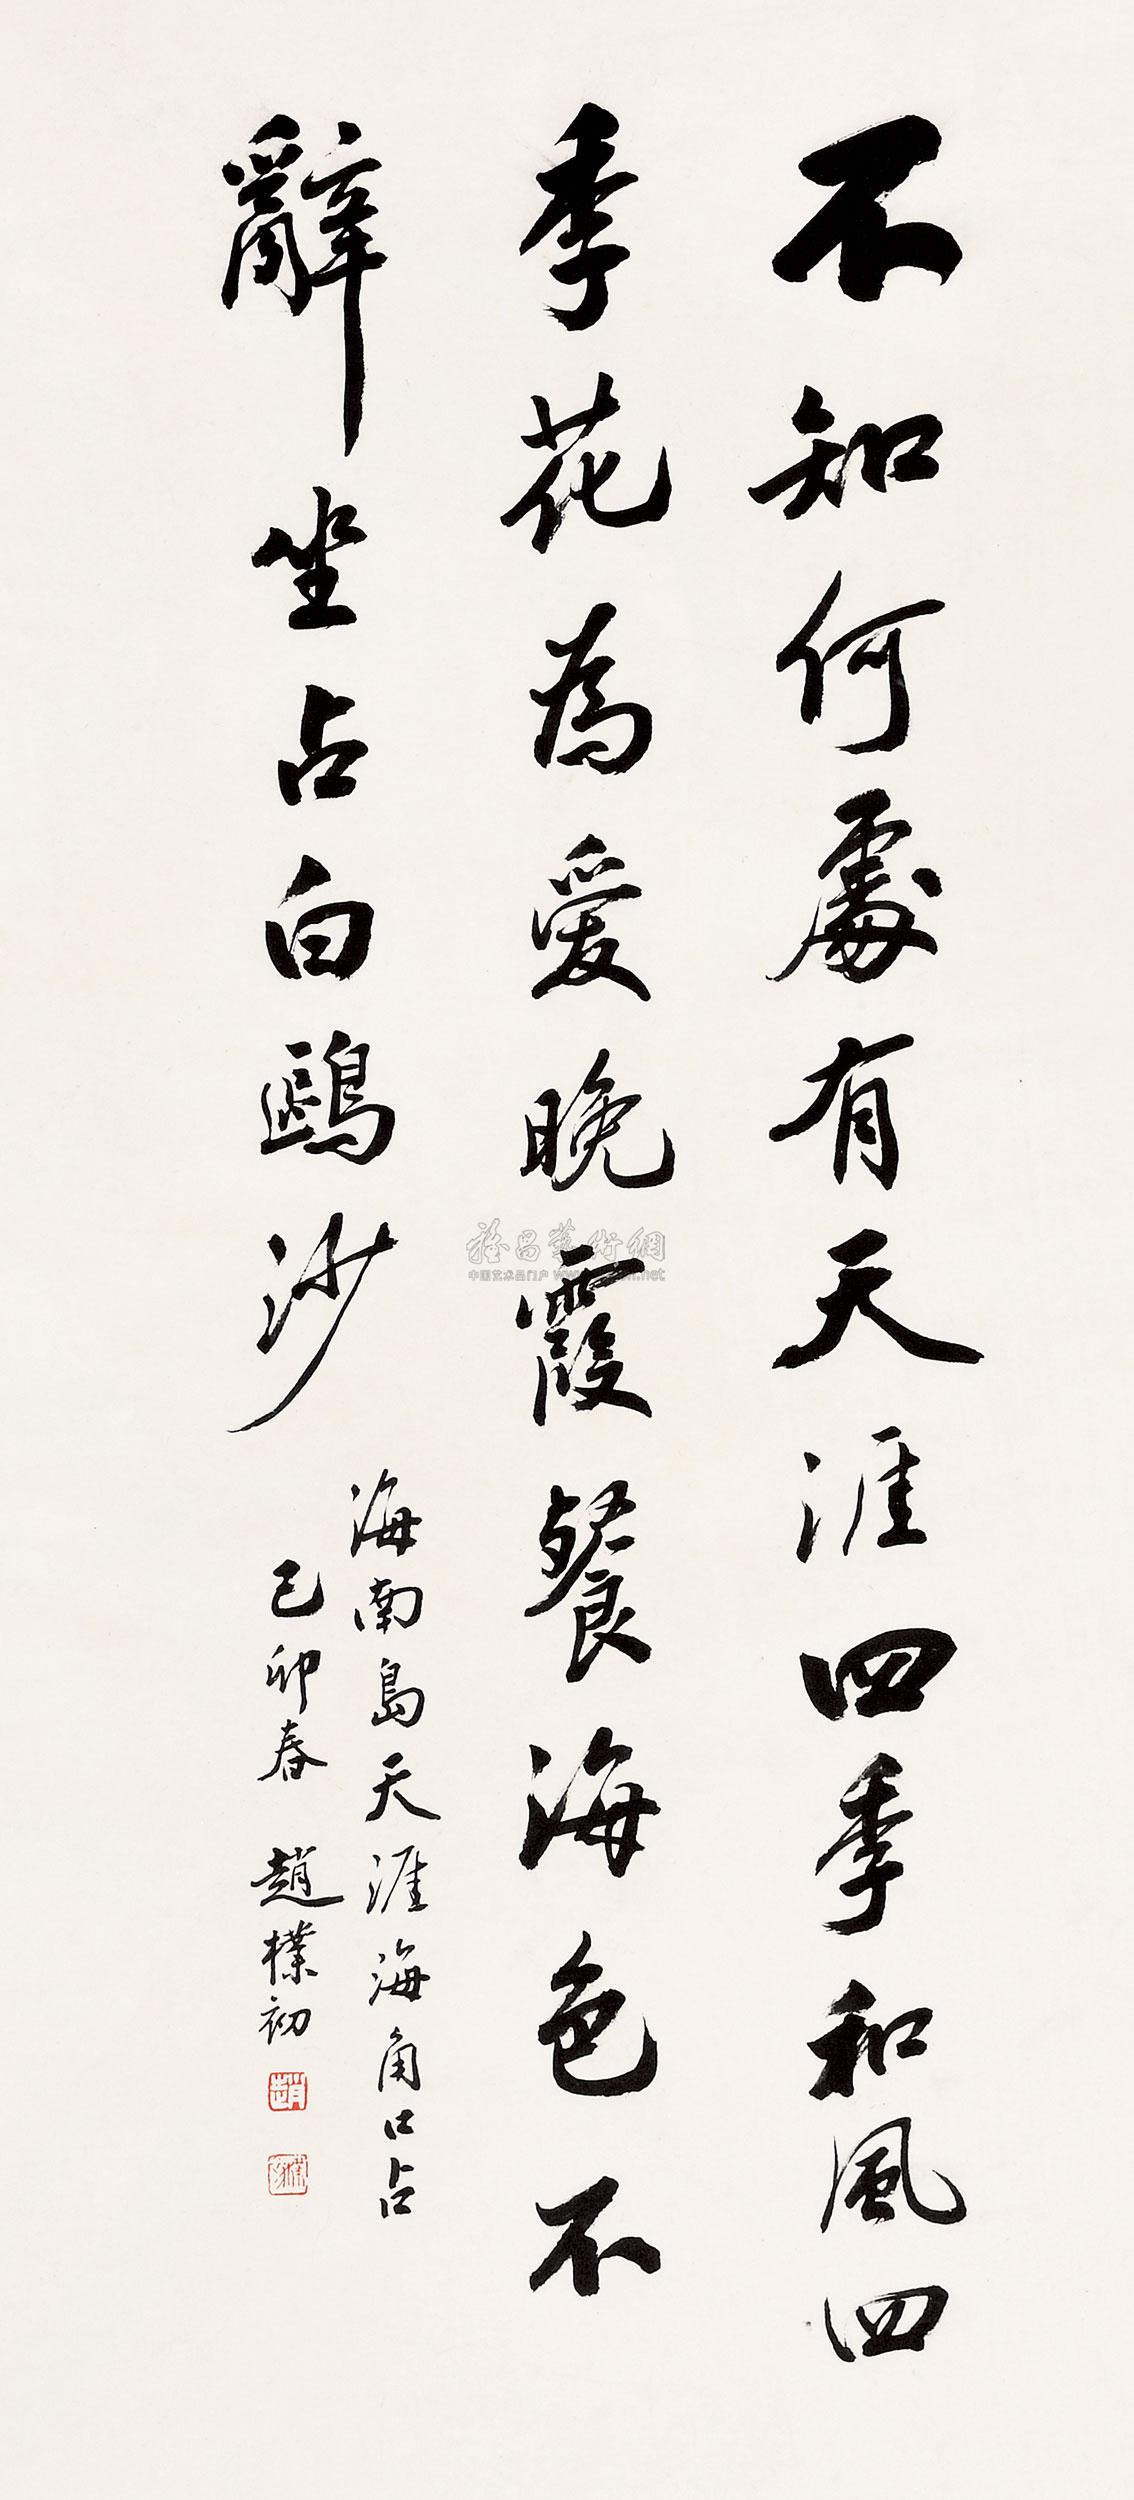 不知何處有天涯四季和風四
季花為愛晚霞餐海色不
辭坐占白鷗沙
海南島天涯海角口占
己卯春 趙樸初
趙
雅昌藝術網
中国艺术品门户 www.